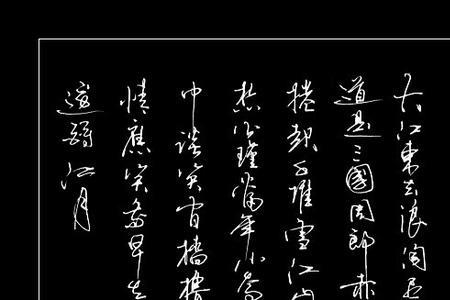 大江東去浪淘盡
道是三國周郎赤
捲起千堆雪江山
想公瑾當年小喬
巾談笑間檣櫓
情應笑我早生
還酹江月